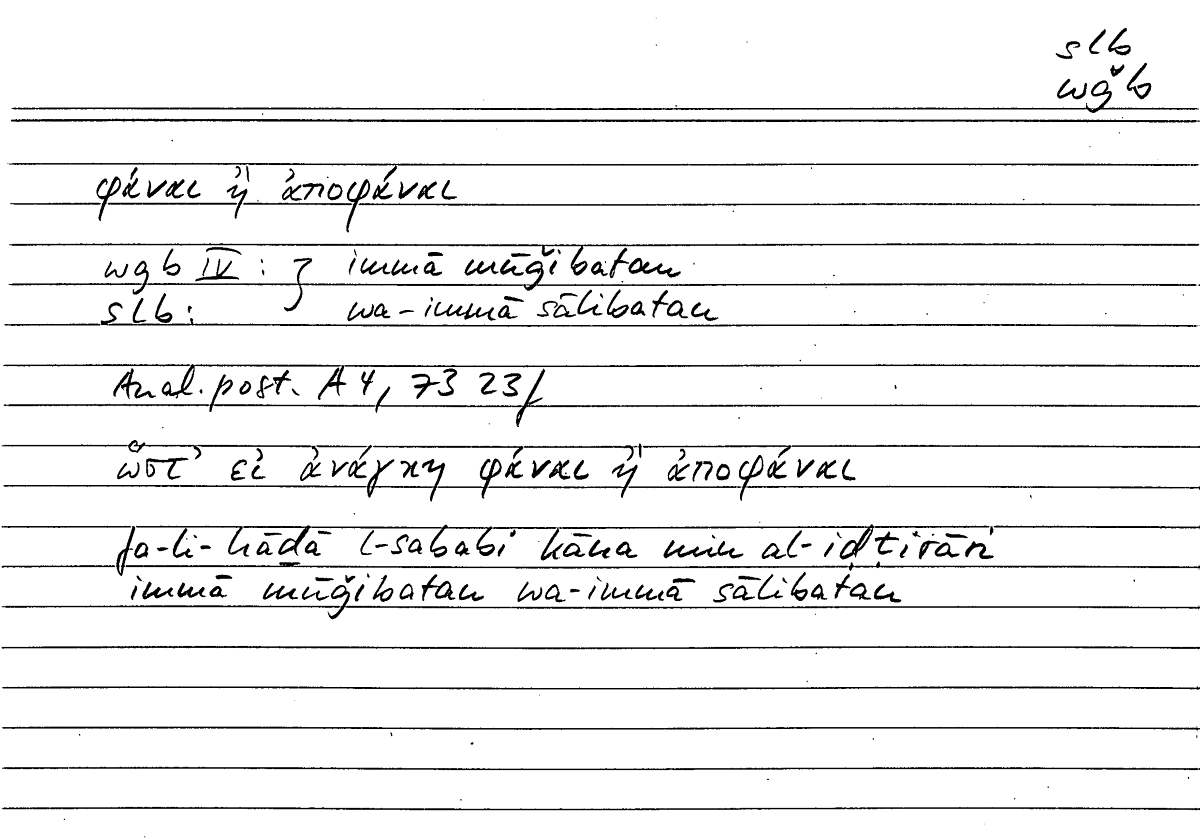 slb
wǧb
φάναι ἢ ἀποφάναι
wgb IV : } immā mūǧibatan
slb : wa-immā sālibatan
Anal. post. A 4, 73 23f
ὥστ' εἰ ἀνάγκη φάναι ἢ ἀποφάναι
fa-li-hādā l-sababi kāna min al-idṭirāri
immā mūǧibatan wa-immā sālibatan